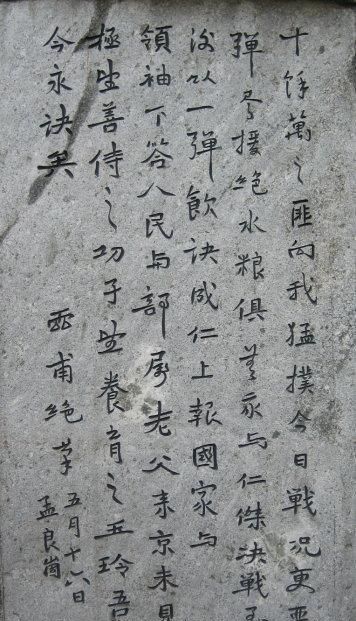 十餘萬之匪向我猛撲今日戰况更惡
彈盡援絕水粮俱無我与仁傑決戰至
後以一彈飲訣成仁上報國家与
領袖下答人民与部屬老父来京未見
極生善侍之功子望養育之玉玲吾
今永訣矣
灵甫絕筆
五月十六日
孟良崮